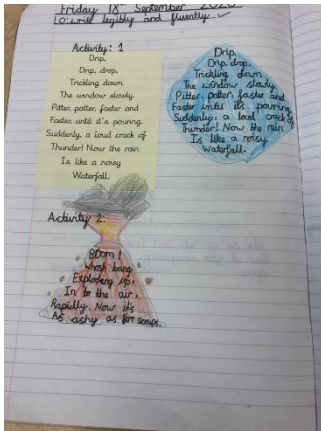 Friday 18th September 2020
LO: write legibly and fluently.
Activity: 1
Drip,
Drip, drop,
Trickling down
The window slowly.
Pitter, patter, faster and
Faster, until it's pouring.
Suddenly, a loud crack of
Thunder! Now the rain
Is like a noisy
Waterfall.
Drip,
Drip, drop,
Trickling down
The window slowly.
Pitter, patter, faster and
Faster until it's pouring
Suddenly, a loud crack of
Thunder! Now the rain
Is like a noisy
Waterfall.
Activity 2:
BOOM!
whosh bang
Exploding up,
In to the air,
Rapidly. Now it's
As ashy as fire